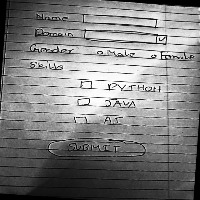 Name
Domain
Gender Male Female
Skills
PYTHON
JAVA
AI
SUBMIT